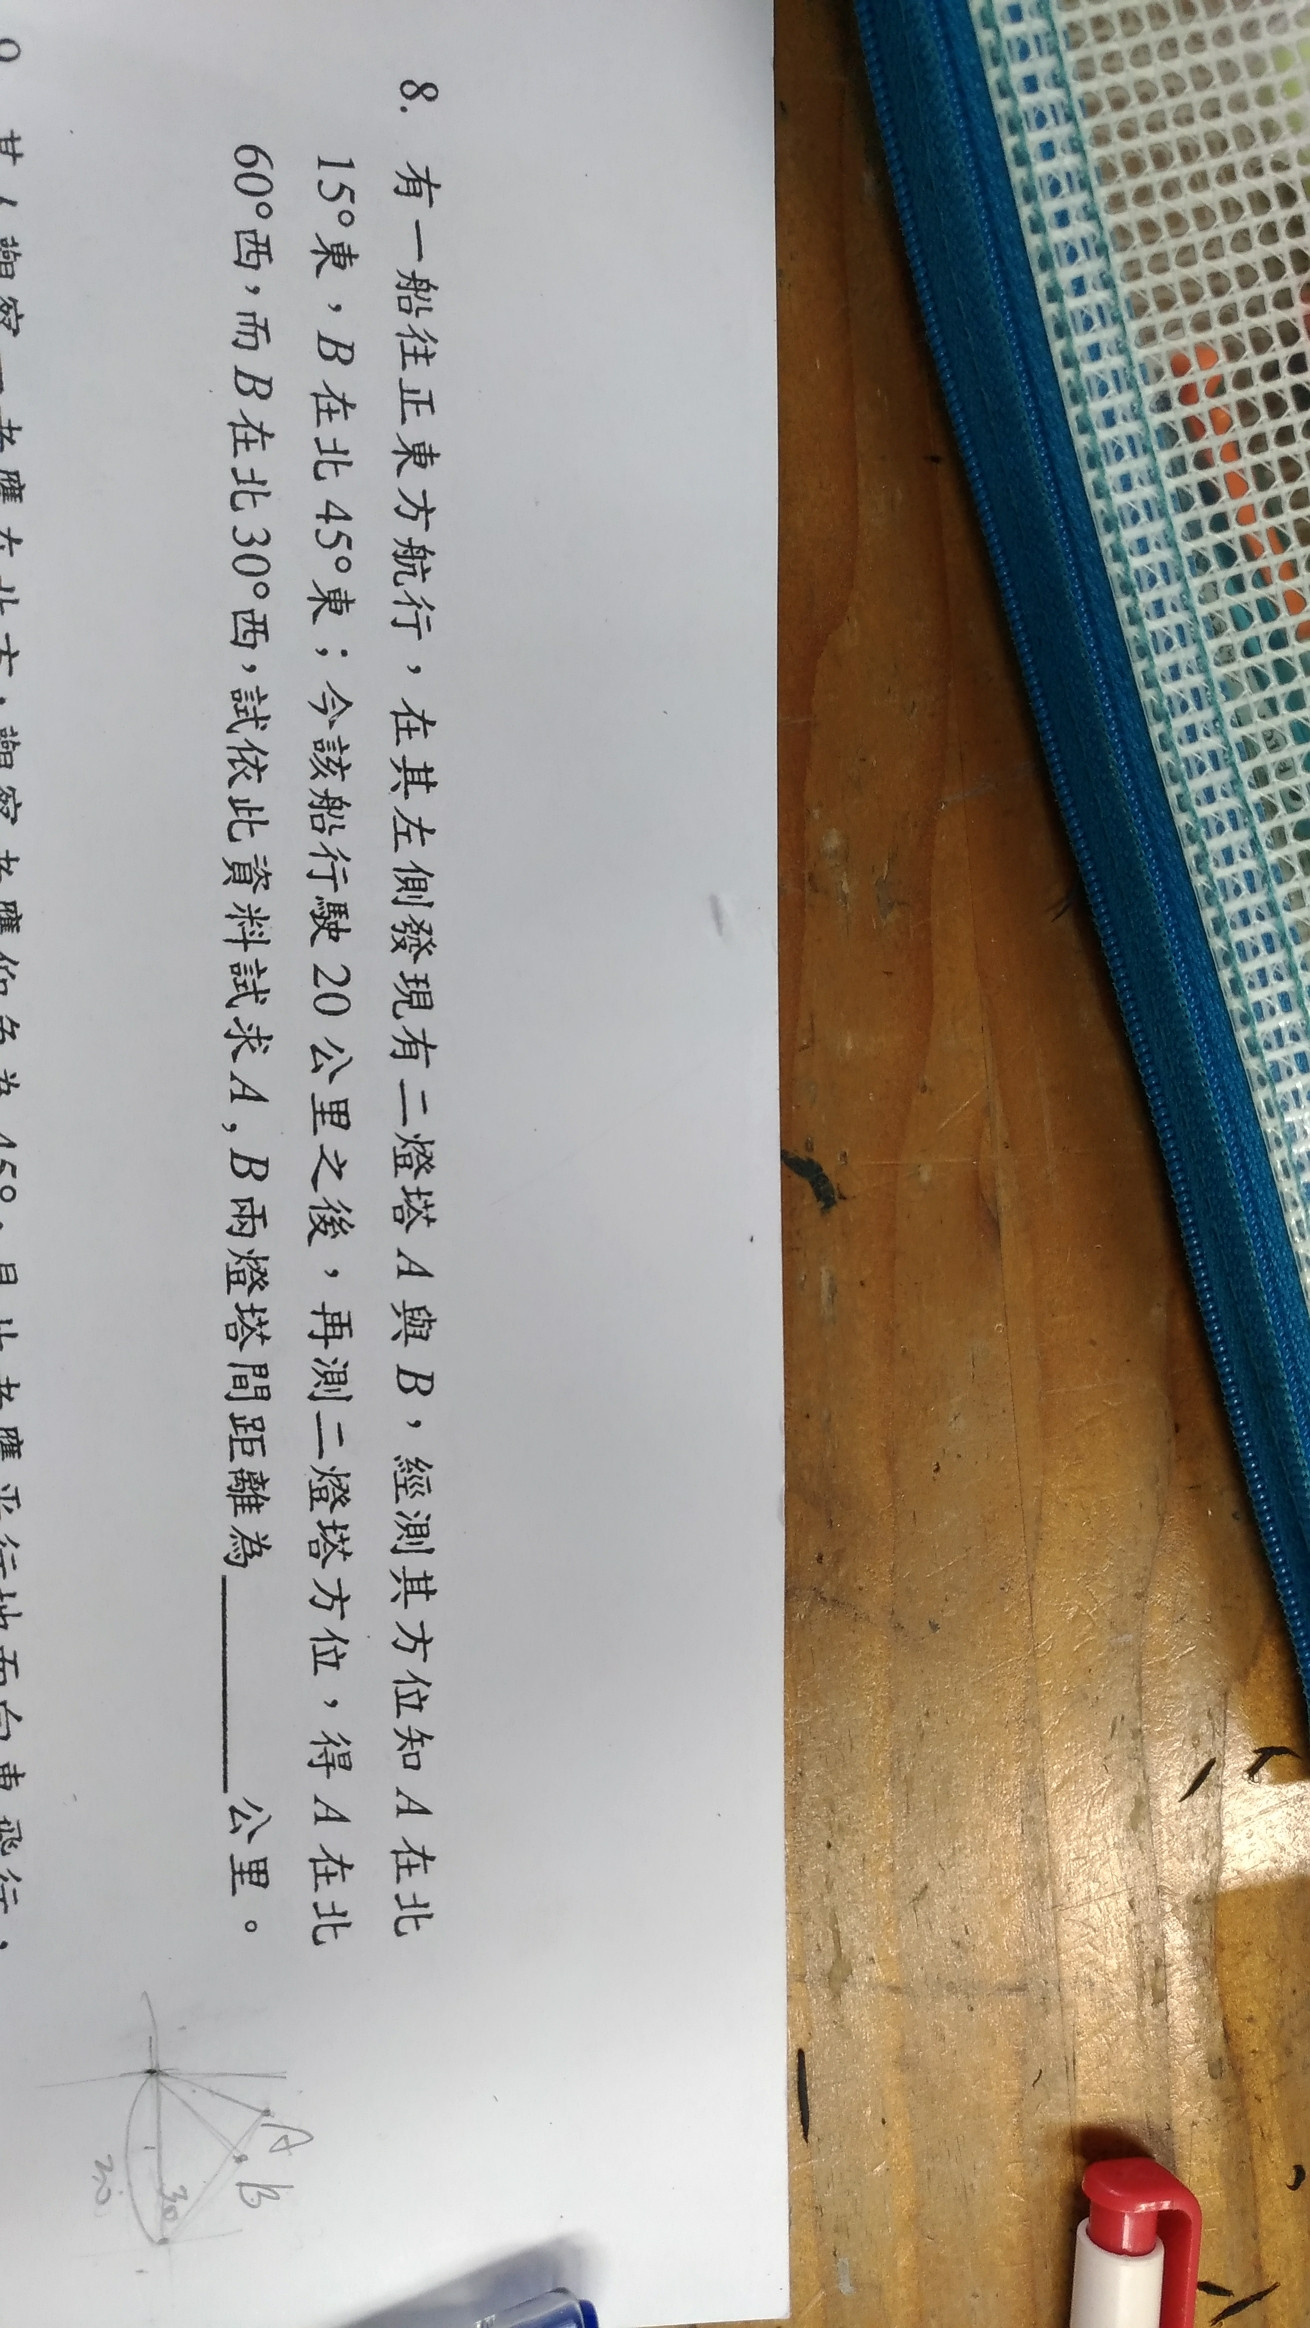 8. 有一船往正東方航行，在其左側發現有二燈塔 A 與 B，經測其方位知 A 在北
15°東，B 在北 45°東；今該船行駛 20 公里之後，再測二燈塔方位，得 A 在北
60°西，而 B 在北 30°西，試依此資料試求 A, B 兩燈塔間距離為________公里。
A
B
30
20